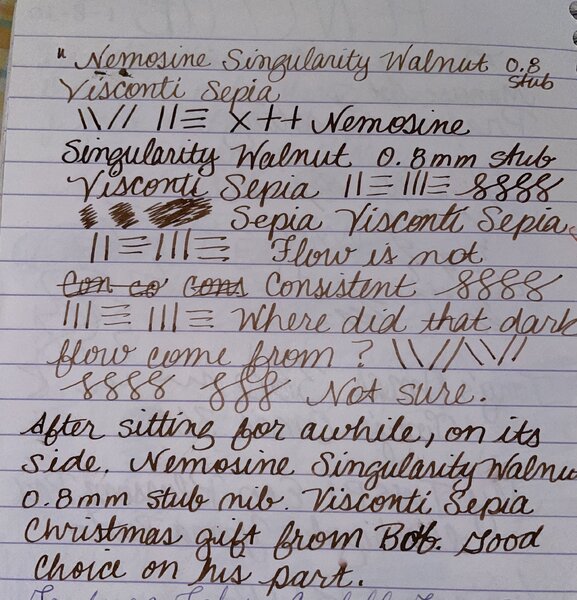 " Nemosine Singularity Walnut 0.8 stub
Visconti Sepia
\\// ||≡ X++ Nemosine
Singularity Walnut 0.8mm stub
Visconti Sepia ||≡ |||≡ 8888
Sepia Visconti Sepia
||≡|||≡ Flow is not
Con co cons Consistent 8888
|||≡ |||≡ Where did that dark
flow come from? \\//\\//
8888 888 Not sure.
After sitting for awhile, on its
side. Nemosine Singularity Walnu
0.8mm stub nib. Visconti Sepia
Christmas gift from Bob. Good
choice on his part.